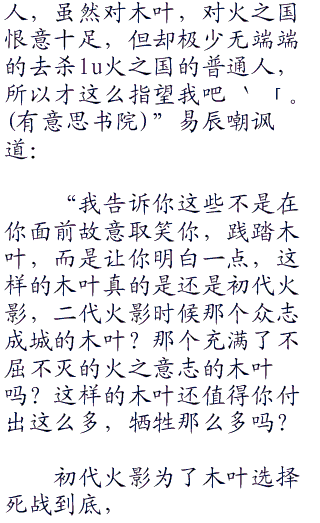 人，虽然对木叶，对火之国
恨意十足，但却极少无端端
的去杀1u火之国的普通人，
所以才这么指望我吧 ‵ 「 。
(有意思书院)”易辰嘲讽
道：
“我告诉你这些不是在
你面前故意取笑你，践踏木
叶，而是让你明白一点，这
样的木叶真的是还是初代火
影，二代火影时候那个众志
成城的木叶？那个充满了不
屈不灭的火之意志的木叶
吗？这样的木叶还值得你付
出这么多，牺牲那么多吗？
初代火影为了木叶选择
死战到底，